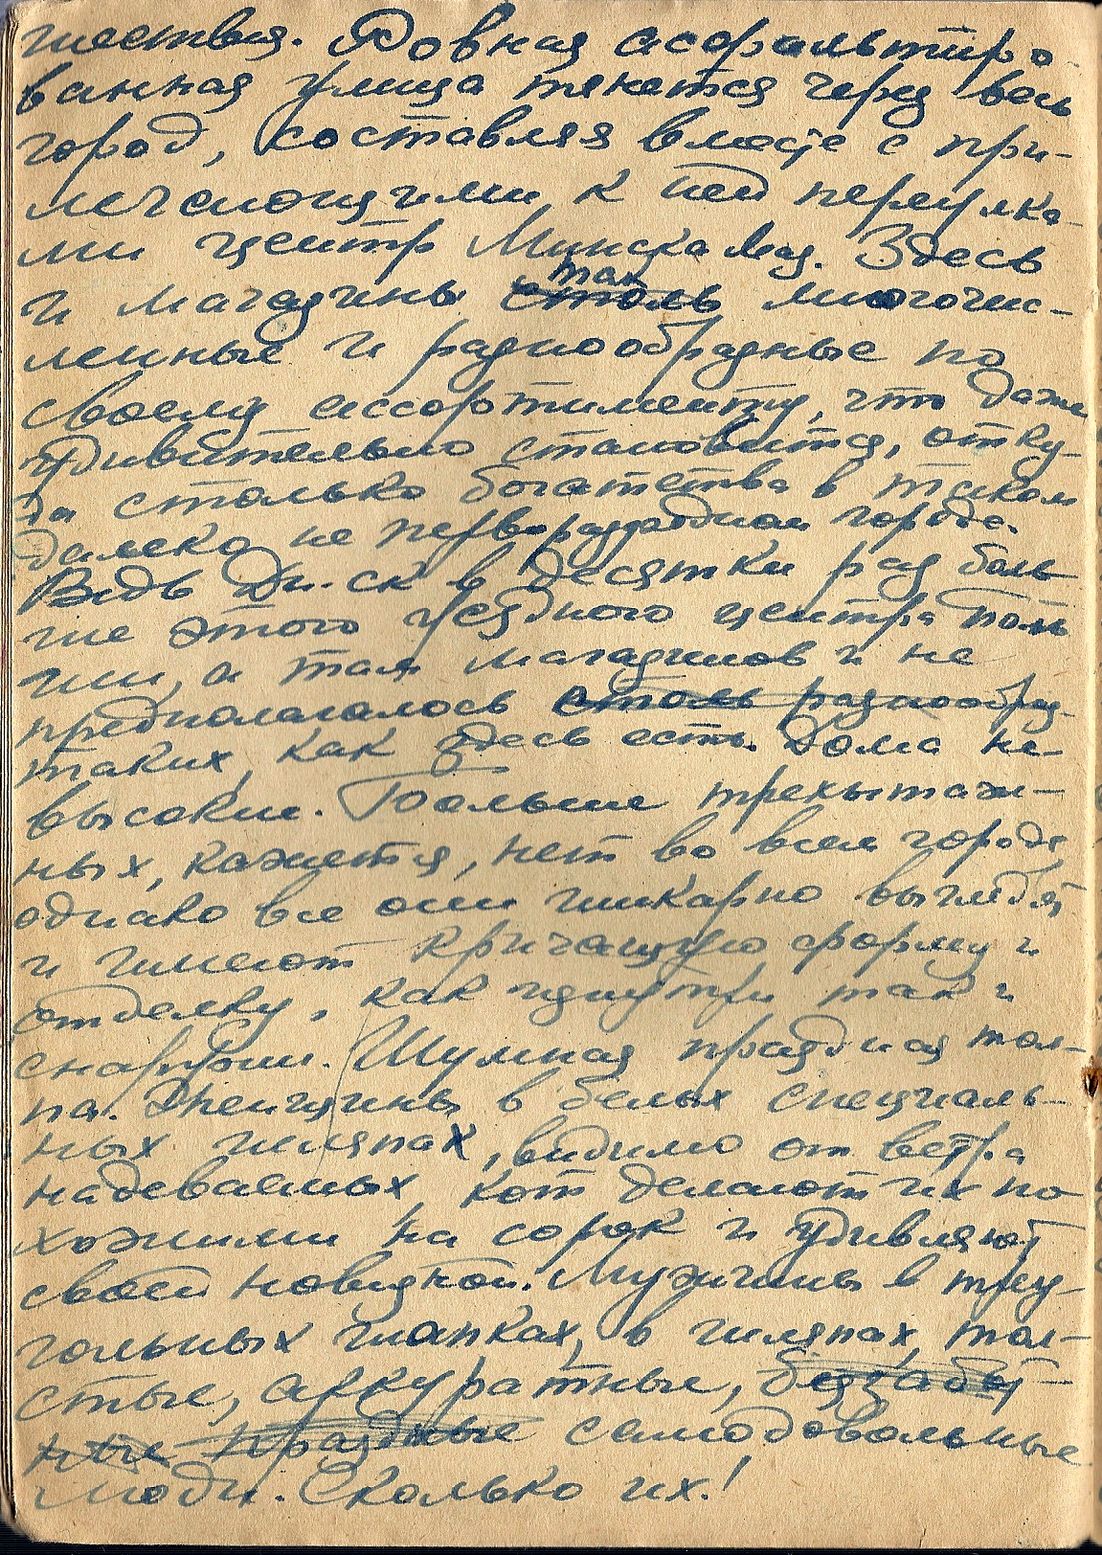 шествия. Ровная асфальтиро-
ванная улица тянется через весь
город, составляя вместе с при-
мечающими к ней переулка-
ми центр Минска Маз. Здесь
и магазины так столь многочис-
ленные и разнообразные по
своему ассортименту, что даже
удивительно становится, отку-
да столько богатства в таком
далеко не перворазрядном городе.
Ведь Дн-ск в десятки раз боль
ше этого уездного центра Поль
ши, а там магазинов и не
предполагалось столь разнообра-
таких, как здесь есть. Дома не
высокие. Больше трехэтаж-
ных, кажется, нет во всем городе
однако все они шикарно выглядят
и имеют кричащую форму и
отделку, как изнутри так и
снаружи. Шумная праздная тол-
па. Женщины в белых специаль-
ных шляпах, видимо от ветра
надеваемых, кот делают их по
хожими на сорок и удивляют
своей новизной. Мужчины в треу-
гольных шапках, в шляпах, тол-
стые, аккуратные, беззабот-
ные праздные самодовольные
люди. Сколько их!